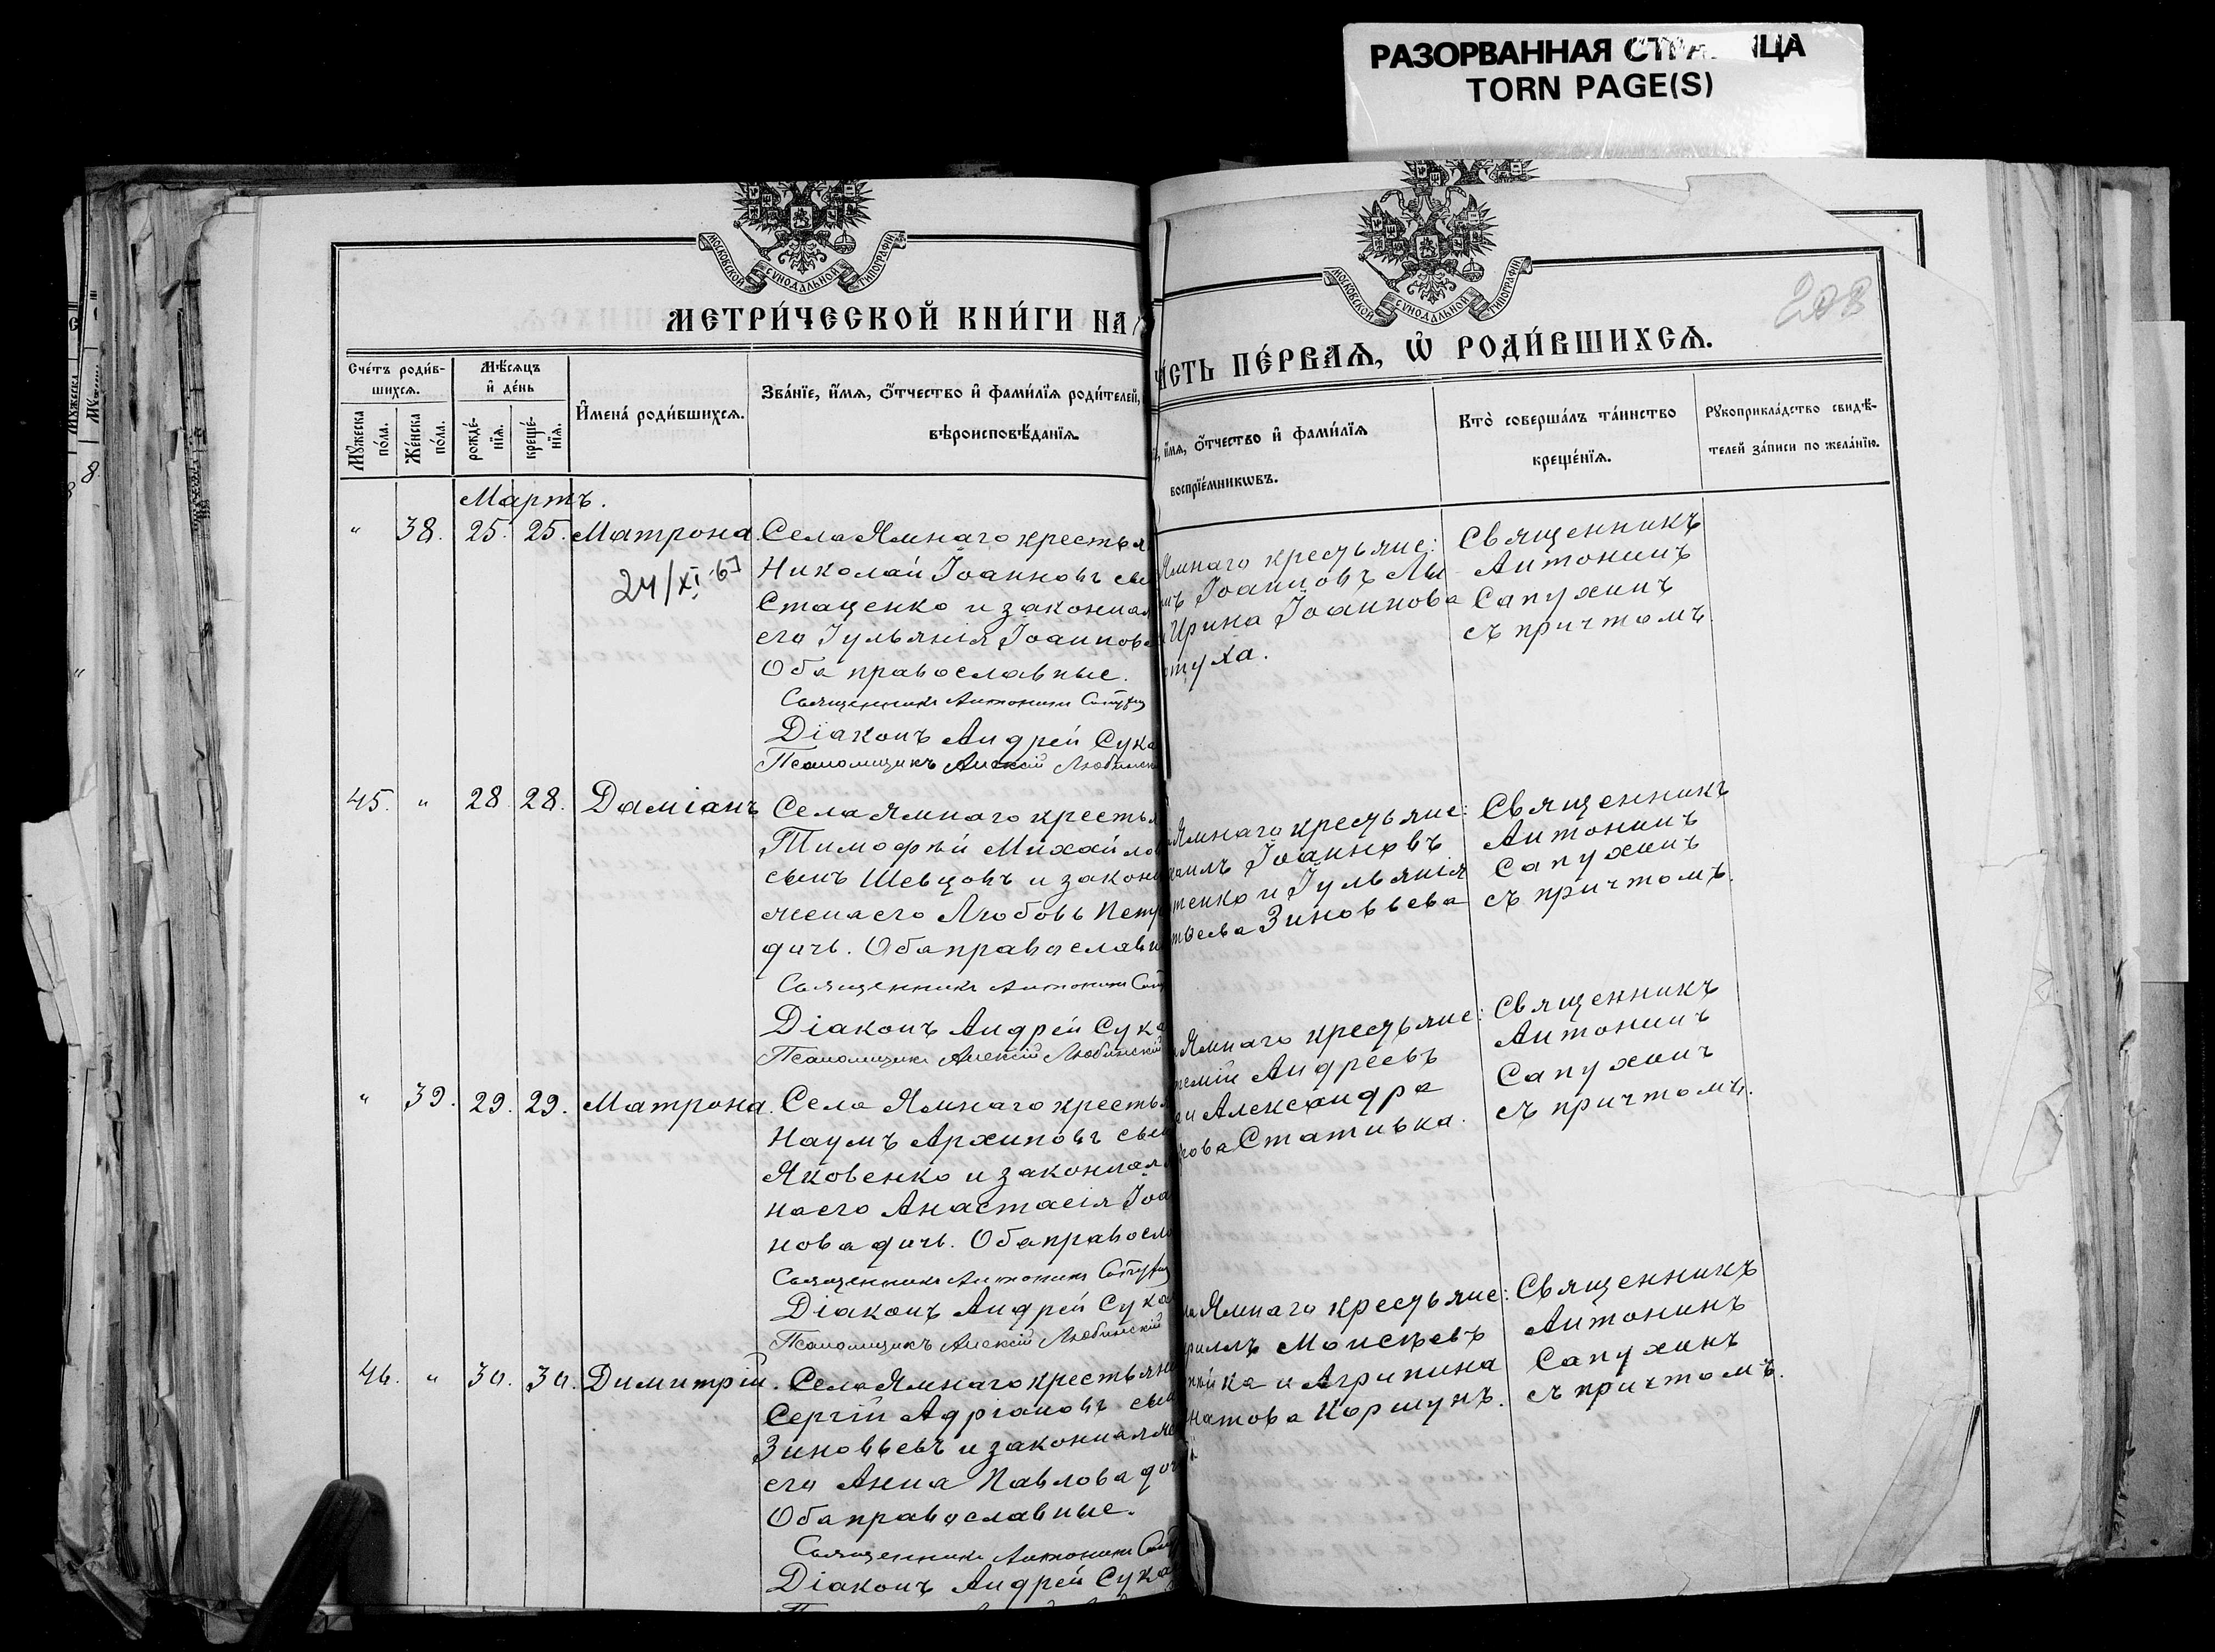 РАЗОРВАННАЯ
TORN PAGE(S)
МОСКОВСКОЙ СѴНОДАЛЬНОЙ ТИПОГРАФІИ
МЕТРИ́ЧЕСКОЙ КНИ́ГИ НА
Сче́тъ роди́в-
шихсѧ.
Мꙋ́жеска по́ла.
Же́нска по́ла.
Мѣ́сѧцъ
и҆ де́нь
рожде́-
нїѧ.
креще́-
нїѧ.
И҆мена̀ роди́вшихсѧ.
Зва́нїе, и҆́мѧ, ѻ҆́тчество и҆ фами́лїѧ роди́телей,
вѣроисповѣ́данїѧ.
Мартъ.
" 38. 25. 25. Матрона. Села Ямнаго крестья
24/XI
Николай Іоанновъ сы
Стаценко и законная
его Іульянія Іоаннова
Оба православные.
Священникъ Антонинъ
Діаконъ Андрей Сука
Псаломщикъ Алексій Любинск
45. " 28. 28. Даміанъ Села Ямнаго крестья
Тимофѣй Михайлов
сынъ Шевцовъ и закон
жена его Любовь Петр
дичъ. Оба православн
Священникъ Антонинъ
Діаконъ Андрей Сука
Псаломщикъ Алексій Любинскій
" 39. 29. 29. Матрона. Села Ямнаго кресть
Наумъ Архиповъ сын
Яковенко и законная
на его Анастасія Іоа
нова дичъ. Оба правосл
Священникъ Антонинъ
Діаконъ Андрей Сука
Псаломщикъ Алексій Любинскій
46. " 30. 30. Димитрій. Села Ямнаго крестьяни
Сергій Адріановъ сын
Зиновьевъ и законная же
его Анна Павлова доч
Оба православные.
Священникъ Антонинъ
Діаконъ Андрей Сука
МОСКОВСКОЙ СѴНОДАЛЬНОЙ ТИПОГРАФІИ
208
ЧА́СТЬ ПЕ́РВАѦ, Ѽ РОДИ́ВШИХСѦ.
и҆́мѧ, ѻ҆́тчество и҆ фами́лїѧ
воспрїе́мникѡвъ.
Кто̀ соверша́лъ та́инство
креще́нїѧ.
Рꙋкоприкла́дство свидѣ́-
телей за́писи по жела́нїю.
Ямнаго крестьяне:
нъ Іоанновъ Лы
Ирина Іоаннова
туха.
Священникъ
Антонинъ
Сапухинъ
съ причтомъ.
Ямнаго крестьяне:
хаилъ Іоанновъ
тенко и Іульянія
тьева Зиновьева
Священникъ
Антонинъ
Сапухинъ
съ причтомъ.
Ямнаго крестьяне:
темій Андреевъ
ай Александра
кова Стативка.
Священникъ
Антонинъ
Сапухинъ
съ причтомъ.
ла Ямнаго крестьяне:
риллъ Моисѣевъ
пійка и Агрипина
натова Коршунъ.
Священникъ
Антонинъ
Сапухинъ
съ причтомъ.